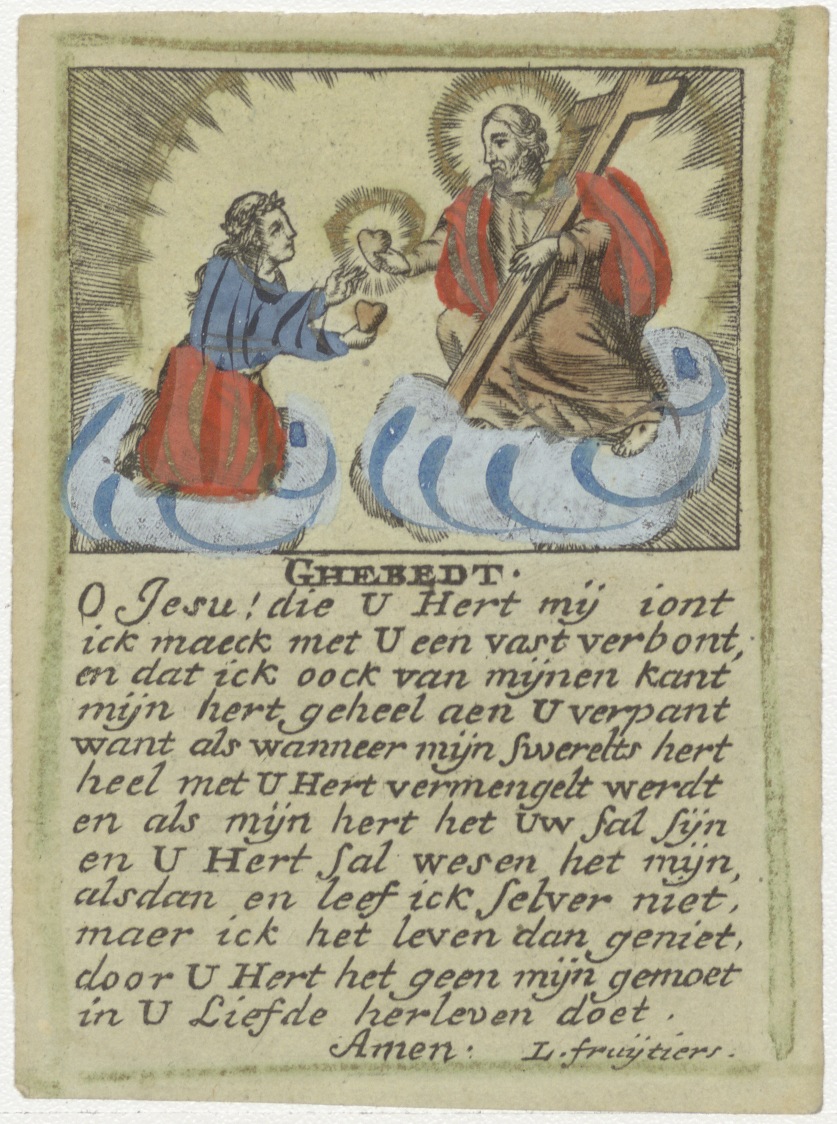 GHEBEDT.
O Jesu! die U Hert mij iont
ick maeck met U een vast verbont,
en dat ick oock van mijnen kant
mijn hert geheel aen U verpant
want als wanneer mijn ſwerelts hert
heel met U Hert vermengelt werdt
en als mijn hert het Uw ſal ſijn
en U Hert ſal wesen het mijn,
alsdan en leef ick ſelver niet,
maer ick het leven dan geniet,
door U Hert het geen mijn gemoet
in U Liefde herleven doet.
Amen. L. fruijtiers.